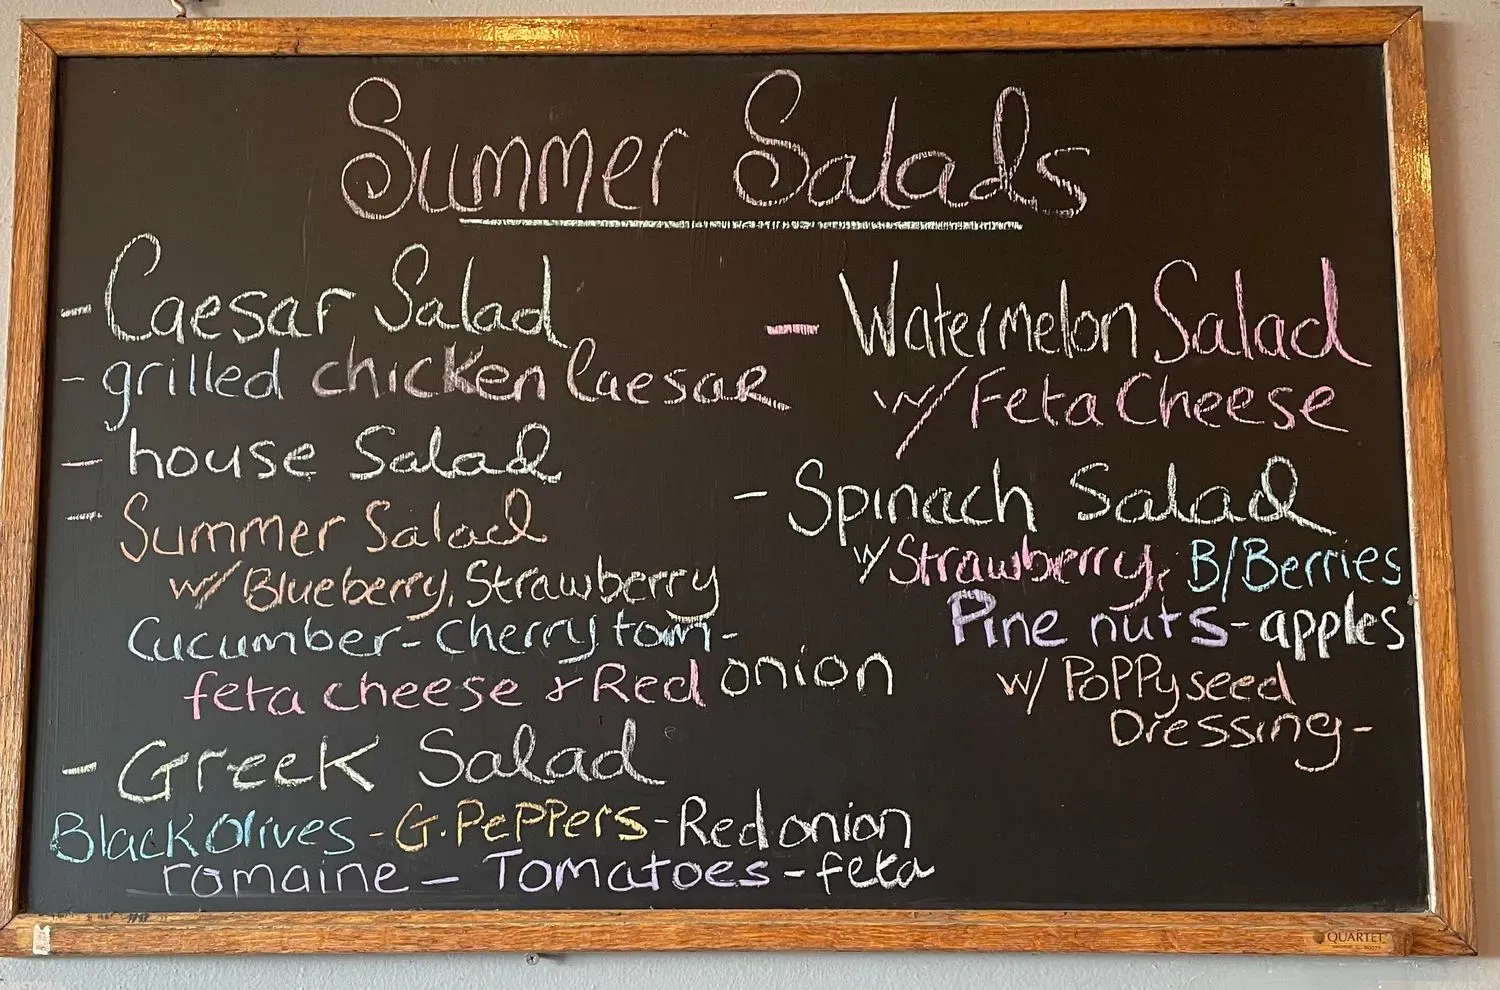 Summer Salads
- Caesar Salad
- grilled chicken Caesar
- house Salad
- Summer Salad
w/ Blueberry, Strawberry
Cucumber - Cherry tom -
feta cheese & Red onion
- Greek Salad
Black Olives - G. Peppers - Red onion
romaine - Tomatoes - feta
- Watermelon Salad
w/ Feta Cheese
- Spinach Salad
w/ Strawberry, B/Berries
Pine nuts - apples
w/ Poppyseed
Dressing -
QUARTET